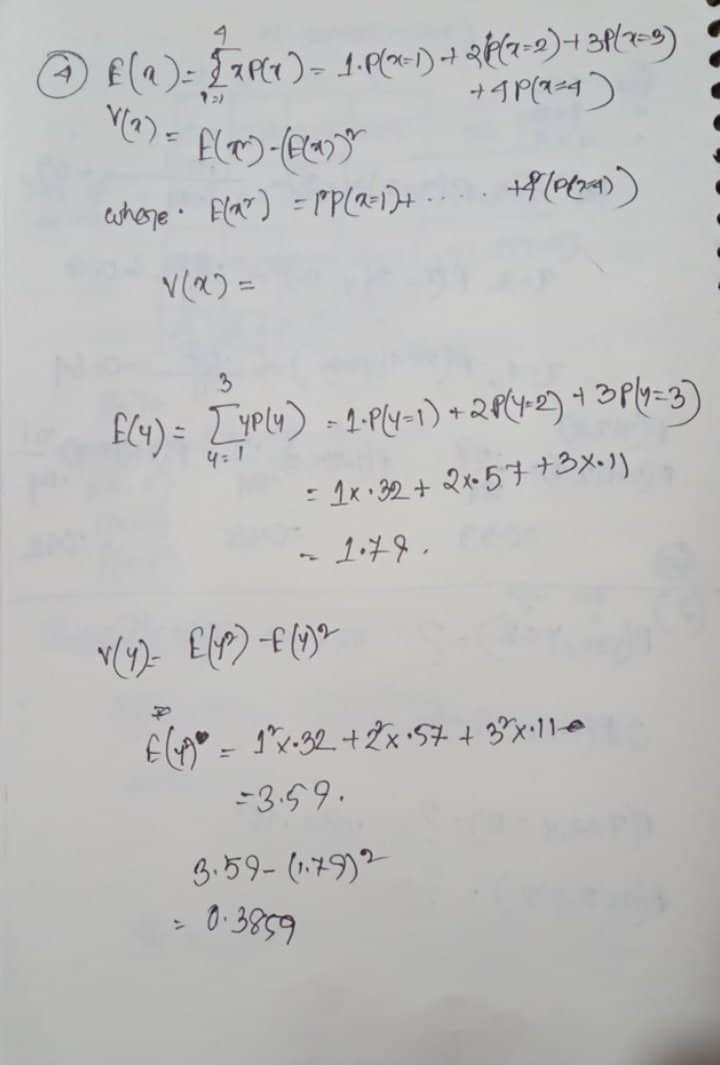 ④ E(x) = ∑_{x=1}^{4} xP(x) = 1.P(x=1) + 2P(x=2) + 3P(x=3)
+ 4P(x=4)
V(x) = E(x²) - (E(x))²
where. E(x²) = 1²P(x=1)+ ..... +4²(P(x=4))
V(x) =
E(y) = ∑_{y=1}^{3} yP(y) = 1.P(y=1) + 2P(y=2) + 3P(y=3)
= 1x.32 + 2x.57 + 3x.11
= 1.79.
V(y) = E(y²) - E(y)²
E(y²) = 1²x.32 + 2²x.57 + 3²x.11
= 3.59.
3.59 - (1.79)²
= 0.3859